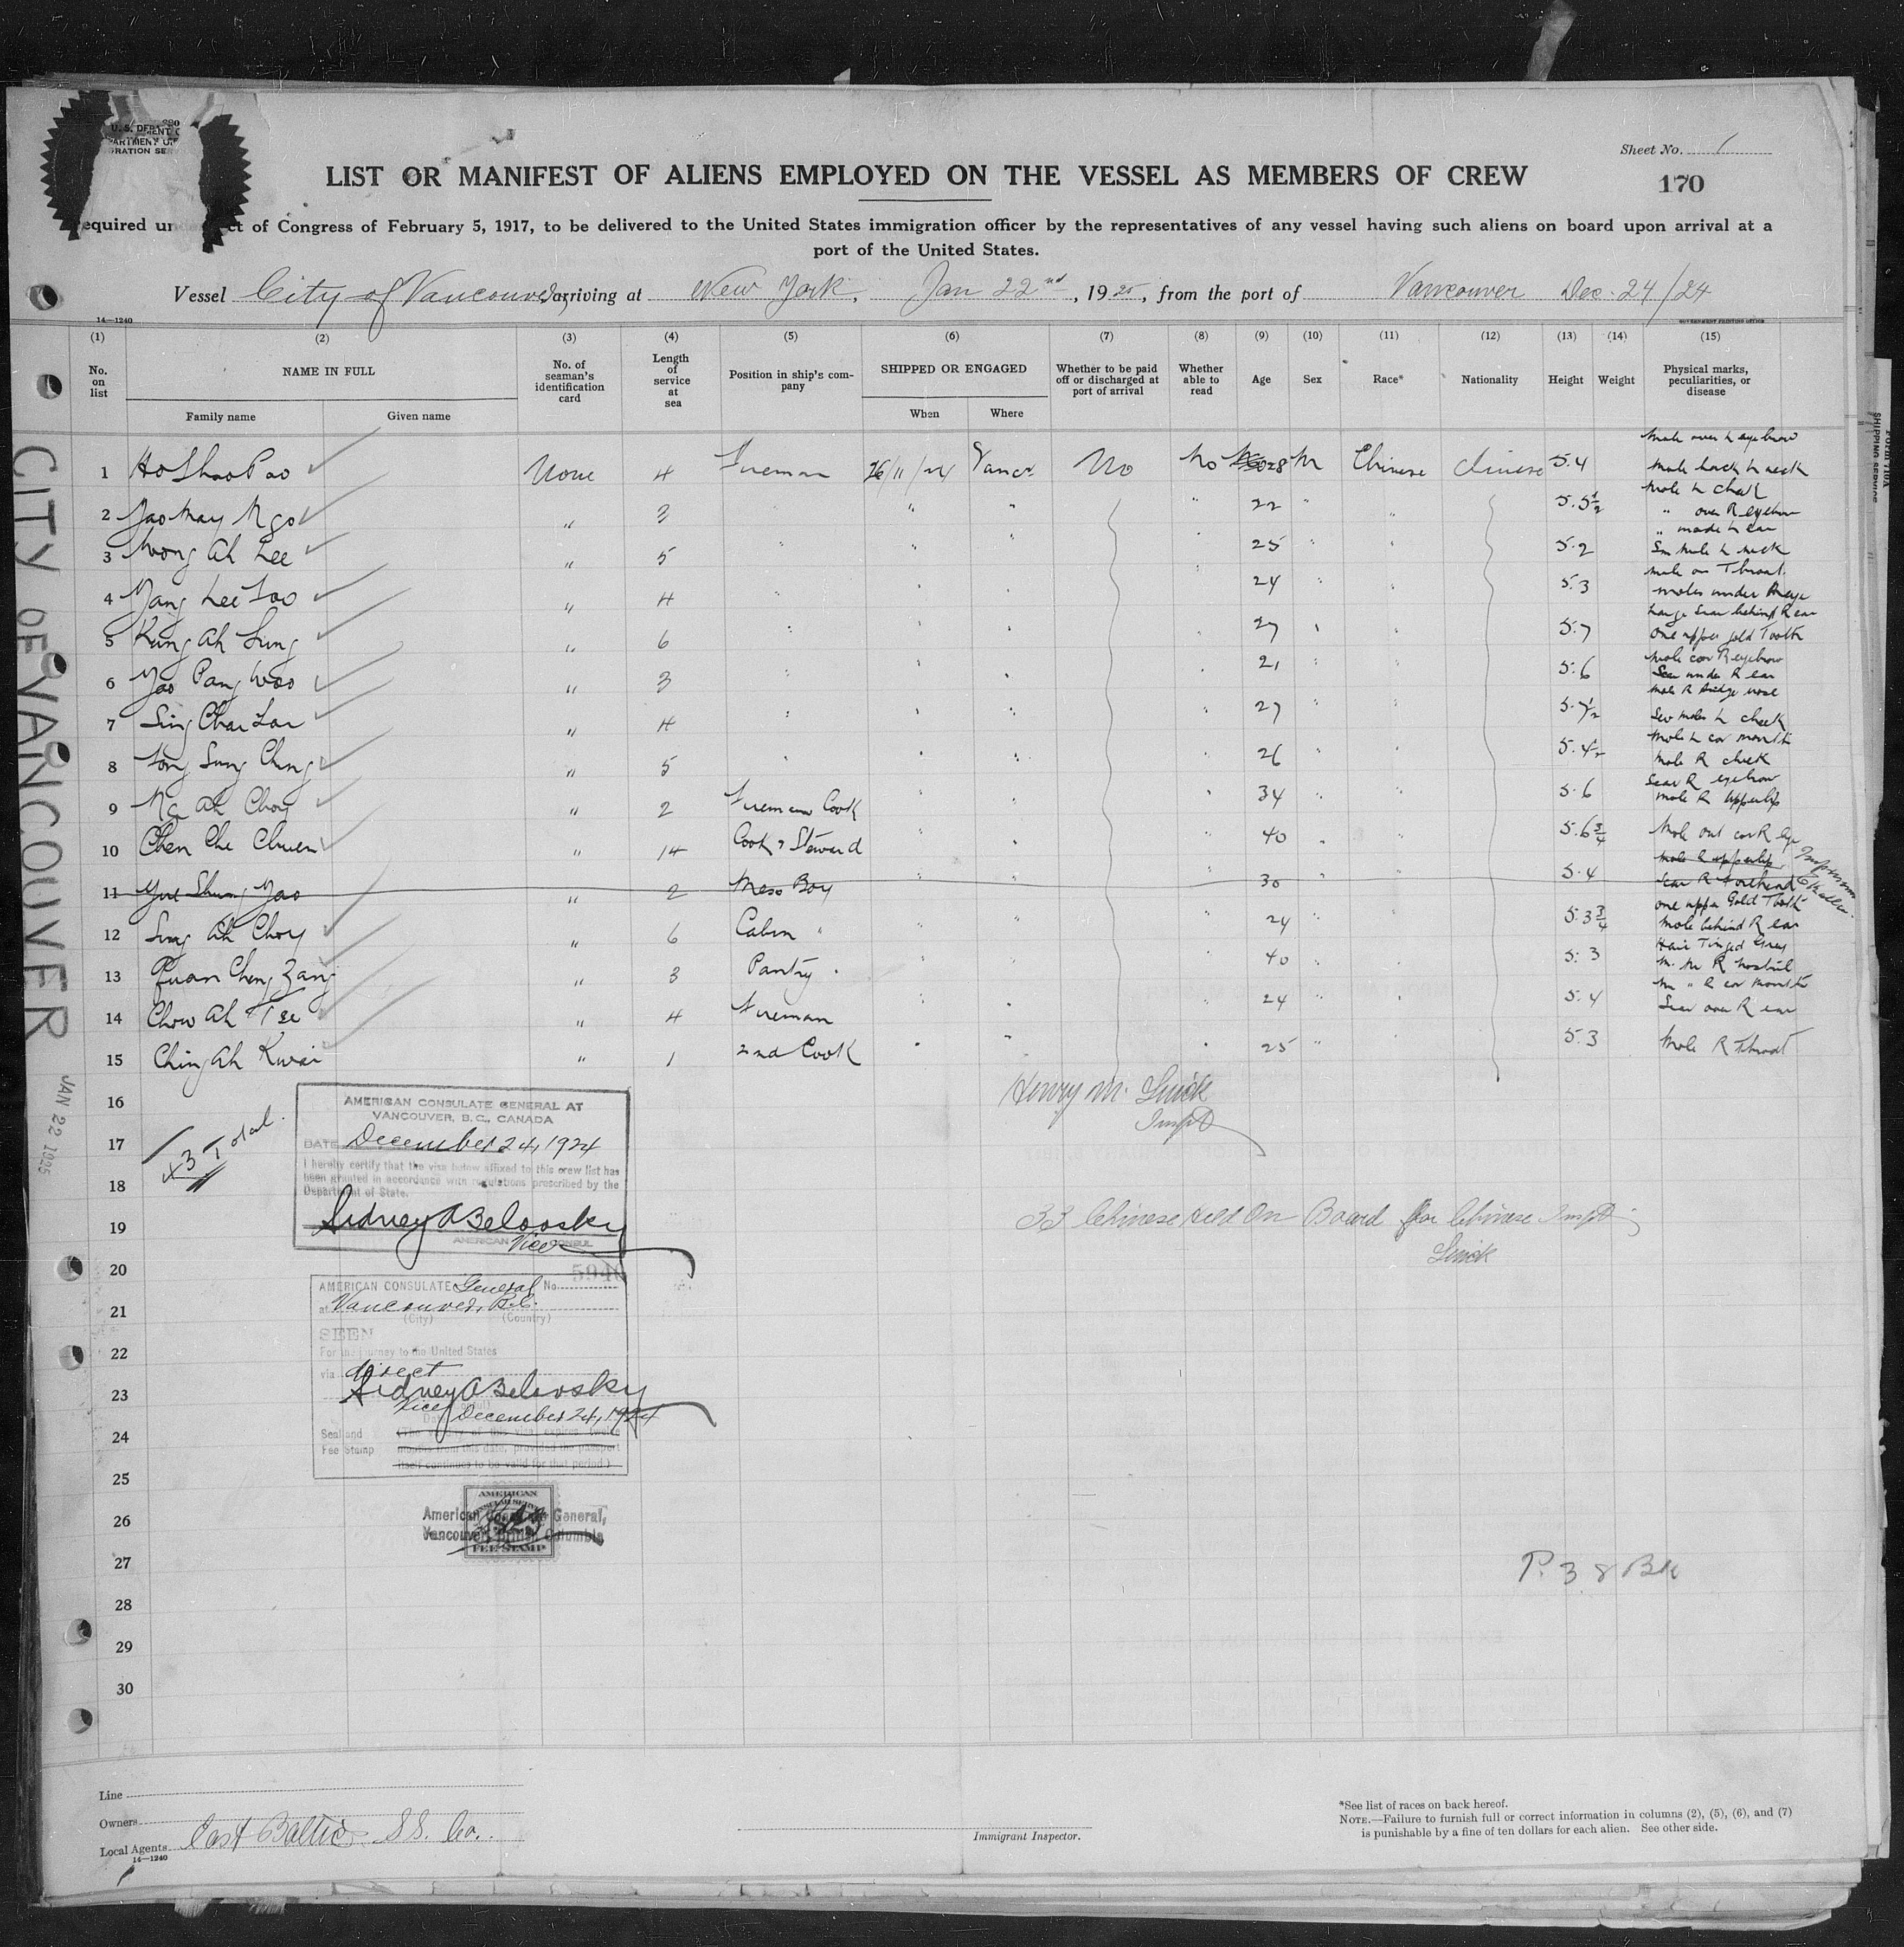 Sheet No. 1
LIST OR MANIFEST OF ALIENS EMPLOYED ON THE VESSEL AS MEMBERS OF CREW
170
of Congress of February 5, 1917, to be delivered to the United States immigration officer by the representatives of any vessel having such aliens on board upon arrival at a
port of the United States.
Vessel City of Vancouver, arriving at New York, Jan 22nd, 1925, from the port of Vancouver Dec. 24/24
14—1240
GOVERNMENT PRINTING OFFICE
(1) (2) (3) (4) (5) (6) (7) (8) (9) (10) (11) (12) (13) (14) (15)
No. on list
NAME IN FULL
Family name Given name
No. of seaman's identification card
Length of service at sea
Position in ship's company
SHIPPED OR ENGAGED
When Where
Whether to be paid off or discharged at port of arrival
Whether able to read
Age Sex Race* Nationality Height Weight
Physical marks, peculiarities, or disease
1 Ho Shao Pao None 4 Fireman 26/11/24 Vancr. No No 28 M Chinese Chinese 5.4 Mole over L eyebrow Mole back L neck
2 Yao May Ngo " 3 " " " " 22 " " 5.5½ Mole L cheek " over R eyebrow
3 Wong Ah Lee " 5 " " " " 25 " " 5.2 " L ear Sm Mole L neck
4 Yang Lee Foo " 4 " " " " 24 " " 5.3 Mole on Throat moles under R eye
5 Kung Ah Sung " 6 " " " " 27 " " 5.7 Large Scar behind R ear One upper gold Tooth
6 Yao Pang Woo " 3 " " " " 21 " " 5.6 Mole cor R eyebrow Scar under R ear
7 Sing Chai Lan " 4 " " " " 27 " " 5.7½ Mole R bridge nose Sev moles L cheek
8 Tong Sung Ching " 5 " " " " 26 " " 5.4½ Mole L cor mouth Mole R cheek
9 Ng Ah Choy " 2 Fireman Cook " " " 34 " " 5.6 Scar R eyebrow Mole R Upperlip
10 Chen Che Chuen " 14 Cook & Steward " " " 40 " " 5.6¾ Mole out cor R eye
11 Yue Shung Yao " 2 Mess Boy " " " 30 " " 5.4 Mole R upperlip Scar R Forehead
12 Sung Ah Choy " 6 Cabin " " " " 24 " " 5.3¾ One upper Gold Tooth Mole behind R ear
13 Kuan Cheng Zang " 3 Pantry " " " " 40 " " 5.3 Hair Tinged Grey M. R nostril
14 Chow Ah Tse " 4 Fireman " " " 24 " " 5.4 " R cor mouth Scar over R ear
15 Ching Ah Kwai " 1 2nd Cook " " " 25 " " 5.3 Mole R Throat
16
17
18
19
20
21
22
23
24
25
26
27
28
29
30
Henry M. Smick
Inspt
33 Chinese Held On Board for Chinese Inspt.
Smick
Total
AMERICAN CONSULATE GENERAL AT
VANCOUVER, B.C., CANADA
DATE December 24, 1924
I hereby certify that the visa below affixed to this crew list has
been granted in accordance with regulations prescribed by the
Department of State.
Sidney A Belovsky
AMERICAN Vice CONSUL
AMERICAN CONSULATE General No. 5940
at Vancouver, B.C.
(City) (Country)
SEEN
For the journey to the United States
via direct
Sidney A Belovsky
Vice
December 24, 1924
Seal and
Fee Stamp
(The validity of this visa expires twelve
months from this date, provided the passport
itself continues to be valid for that period.)
AMERICAN
CONSULAR SERVICE
FEE STAMP
American Consulate General,
Vancouver, British Columbia
P. 38 BK
CITY OF VANCOUVER
JAN 22 1925
Line
Owners
Local Agents East Baltic SS. Co.
14—1240
Immigrant Inspector.
*See list of races on back hereof.
NOTE.—Failure to furnish full or correct information in columns (2), (5), (6), and (7)
is punishable by a fine of ten dollars for each alien. See other side.